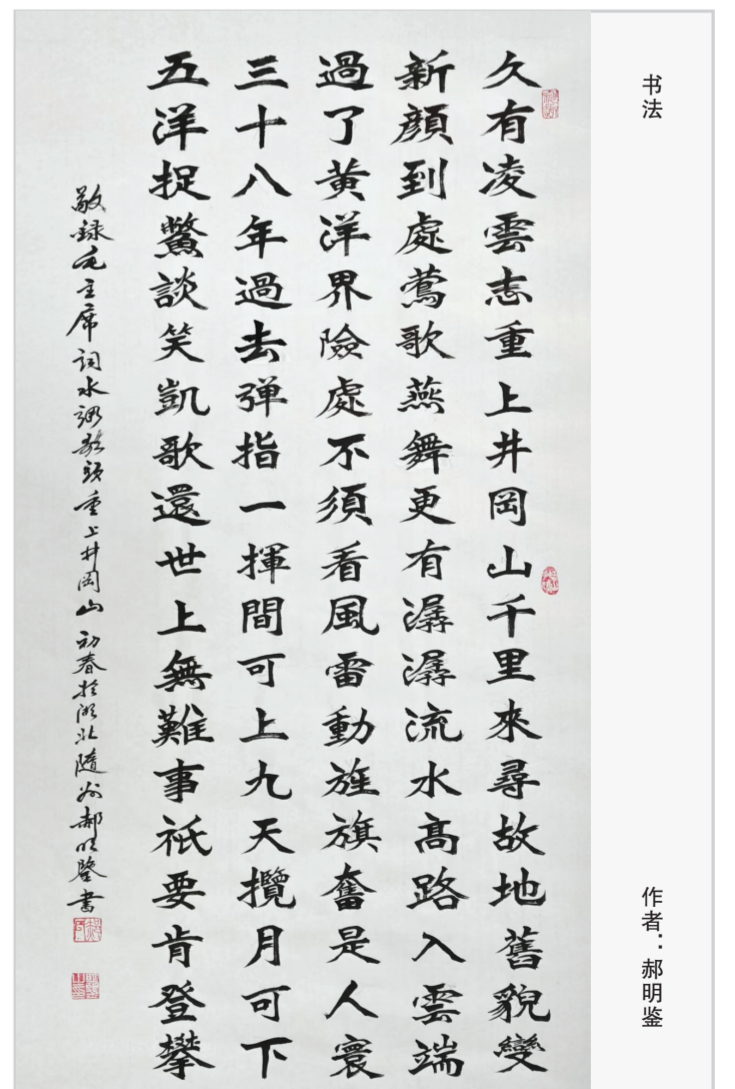 书法
作者：郝明鉴
久有凌雲志重上井岡山千里來尋故地舊貌變
新顔到處鶯歌燕舞更有潺潺流水高路入雲端
過了黃洋界險處不須看風雷動旌旗奮是人寰
三十八年過去弹指一揮間可上九天攬月可下
五洋捉鱉談笑凱歌還世上無難事祇要肯登攀
敬録毛主席词水調歌頭重上井岡山 初春於湖北隨州郝明鋻書